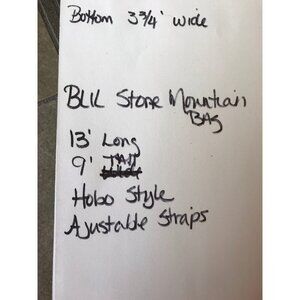 Bottom 3 3/4' wide
BLK Stone Mountain
BAG
13' Long
9' TALL
Hobo Style
Ajustable Straps